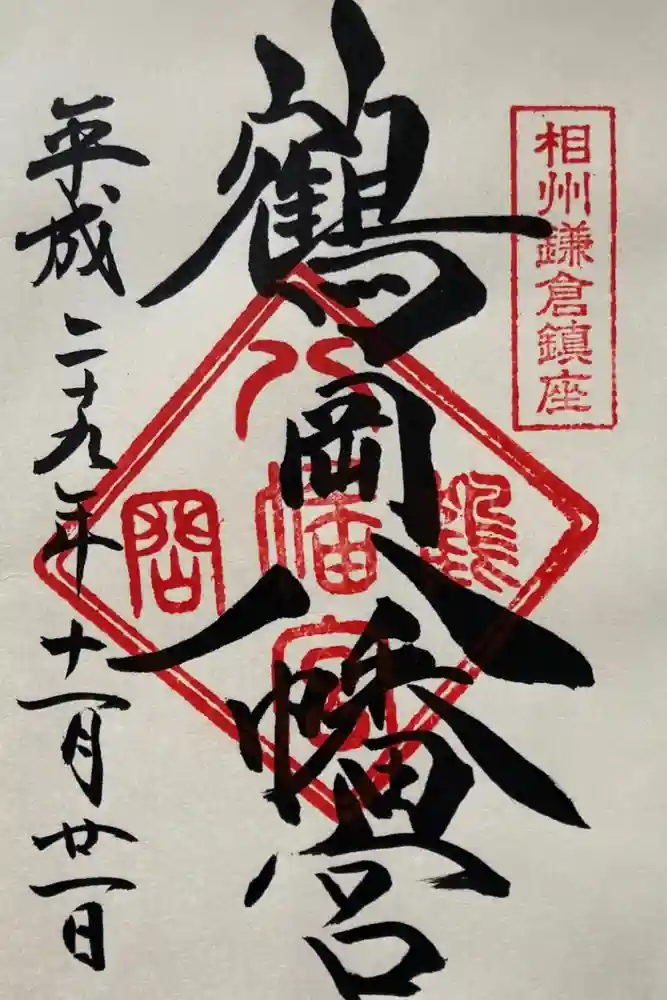 相州鎌倉鎮座
鶴岡八幡宮
鶴岡八幡宮
平成二十九年十一月廿一日